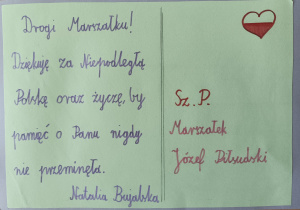 Drogi Marszałku!
Dziękuję za Niepodległą
Polskę oraz życzę, by
pamięć o Panu nigdy
nie przeminęła.
Natalia Bujalska
Sz. P.
Marszałek
Józef Piłsudski